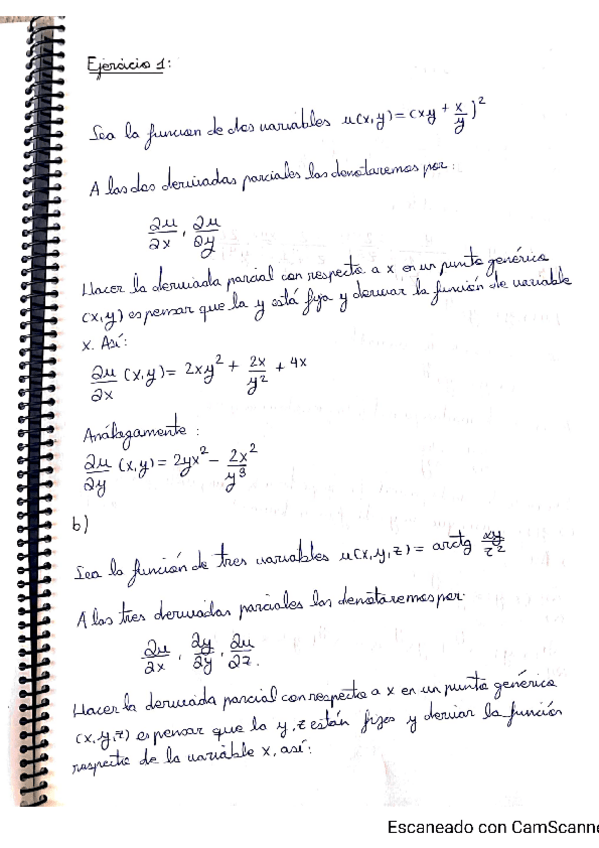 Ejercicio 1:
Sea la funcion de dos variables u(x,y) = (xy + x/y)²
A las dos derivadas parciales las denotaremos por:
∂u/∂x , ∂u/∂y
Hacer la derivada parcial con respecto a x en un punto genérico
(x,y) es pensar que la y está fija y derivar la función de variable
x. Así:
∂u/∂x (x,y) = 2xy² + 2x/y² + 4x
Análogamente:
∂u/∂y (x,y) = 2yx² - 2x²/y³
b)
Sea la función de tres variables u(x,y,z) = arctg xy/z²
A las tres derivadas parciales las denotaremos por:
∂u/∂x , ∂y/∂y , ∂u/∂z.
Hacer la derivada parcial con respecto a x en un punto genérico
(x,y,z) es pensar que la y, z están fijas y derivar la función
respecto de la variable x, así:
Escaneado con CamScanne